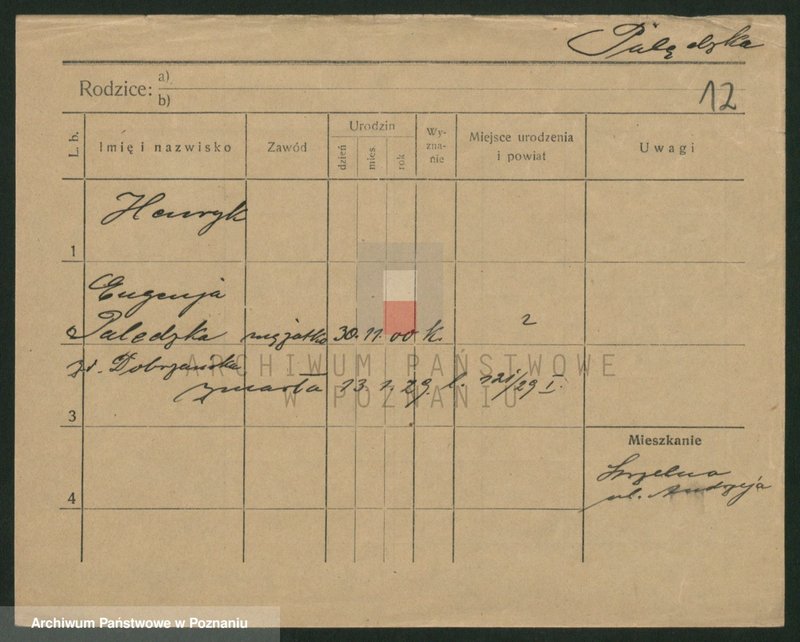 Palędzka
Rodzice: a)
b)
12
L. b.
Imię i nazwisko
Zawód
Urodzin
dzień
mies
rok
Wy-
zna-
nie
Miejsce urodzenia
i powiat
Uwagi
1
Henryk
2
Eugenja
Palędzka mężatka 30. 11. 00 k.
zd. Dobrzańska
zmarła 13. 1. 29. l. 121/29 I.
3
4
Mieszkanie
ul. Andrzeja
ARCHIWUM PAŃSTWOWE
W POZNANIU
Archiwum Państwowe w Poznaniu